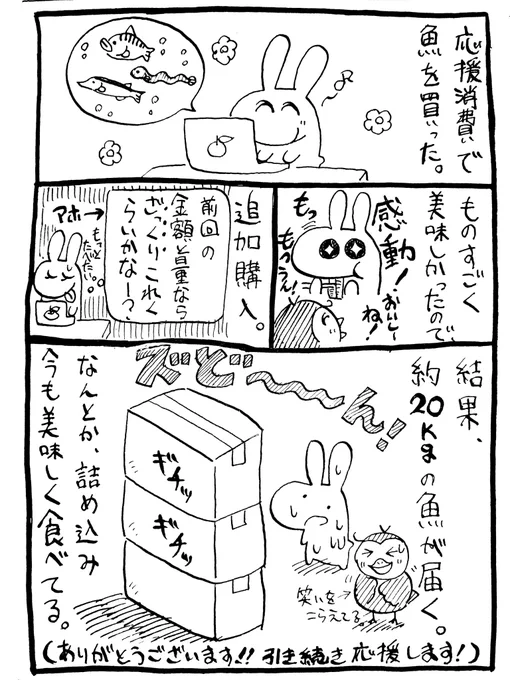 応援消費で
魚を買った。
ものすごく
美味しかったので、
感動!
おいしー
ね!
もっ
もっ
うん!
追加購入。
前回の
金額と量なら
ざっくりこれく
らいかなー?
アホ→
もっと
たべたい。
結果、
約20kgの魚が届く。
ズビ〜〜ん!
ギチッ
ギチッ
笑いを
こらえてる。
なんとか、詰め込み
今も美味しく食べてる。
(ありがとうございます!! 引き続き応援します!)